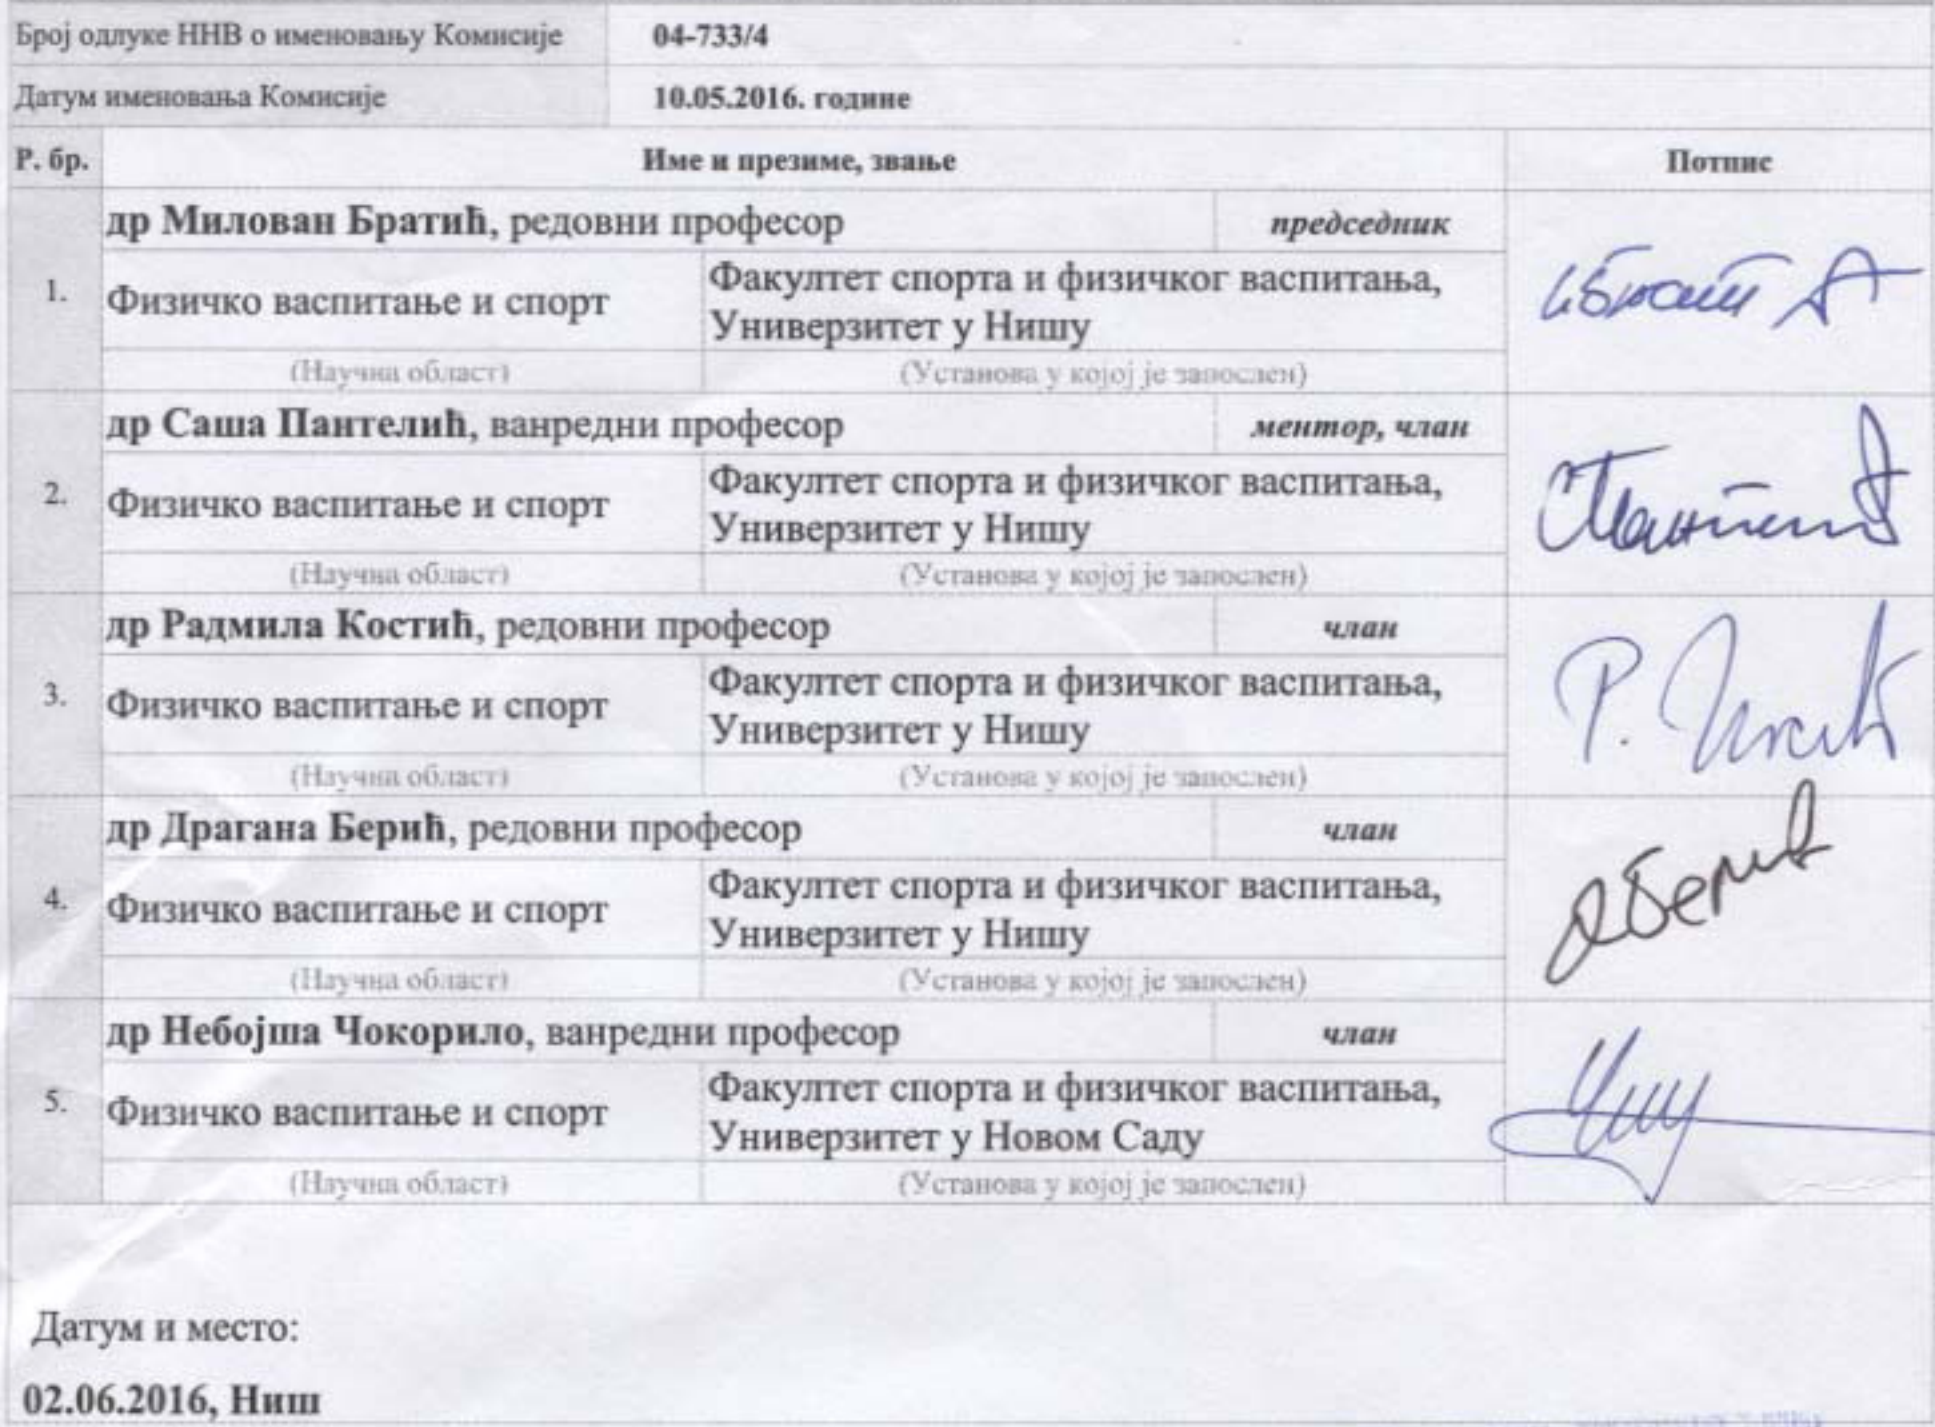 Број одлуке ННВ о именовању Комисије 04-733/4
Датум именовања Комисије 10.05.2016. године
Р. бр. Име и презиме, звање Потпис
др Милован Братић, редовни професор председник
1. Физичко васпитање и спорт Факултет спорта и физичког васпитања,
Универзитет у Нишу
(Научна област) (Установа у којој је запослен)
др Саша Пантелић, ванредни професор ментор, члан
2. Физичко васпитање и спорт Факултет спорта и физичког васпитања,
Универзитет у Нишу
(Научна област) (Установа у којој је запослен)
др Радмила Костић, редовни професор члан
3. Физичко васпитање и спорт Факултет спорта и физичког васпитања,
Универзитет у Нишу
(Научна област) (Установа у којој је запослен)
др Драгана Берић, редовни професор члан
4. Физичко васпитање и спорт Факултет спорта и физичког васпитања,
Универзитет у Нишу
(Научна област) (Установа у којој је запослен)
др Небојша Чокорило, ванредни професор члан
5. Физичко васпитање и спорт Факултет спорта и физичког васпитања,
Универзитет у Новом Саду
(Научна област) (Установа у којој је запослен)
Датум и место:
02.06.2016, Ниш